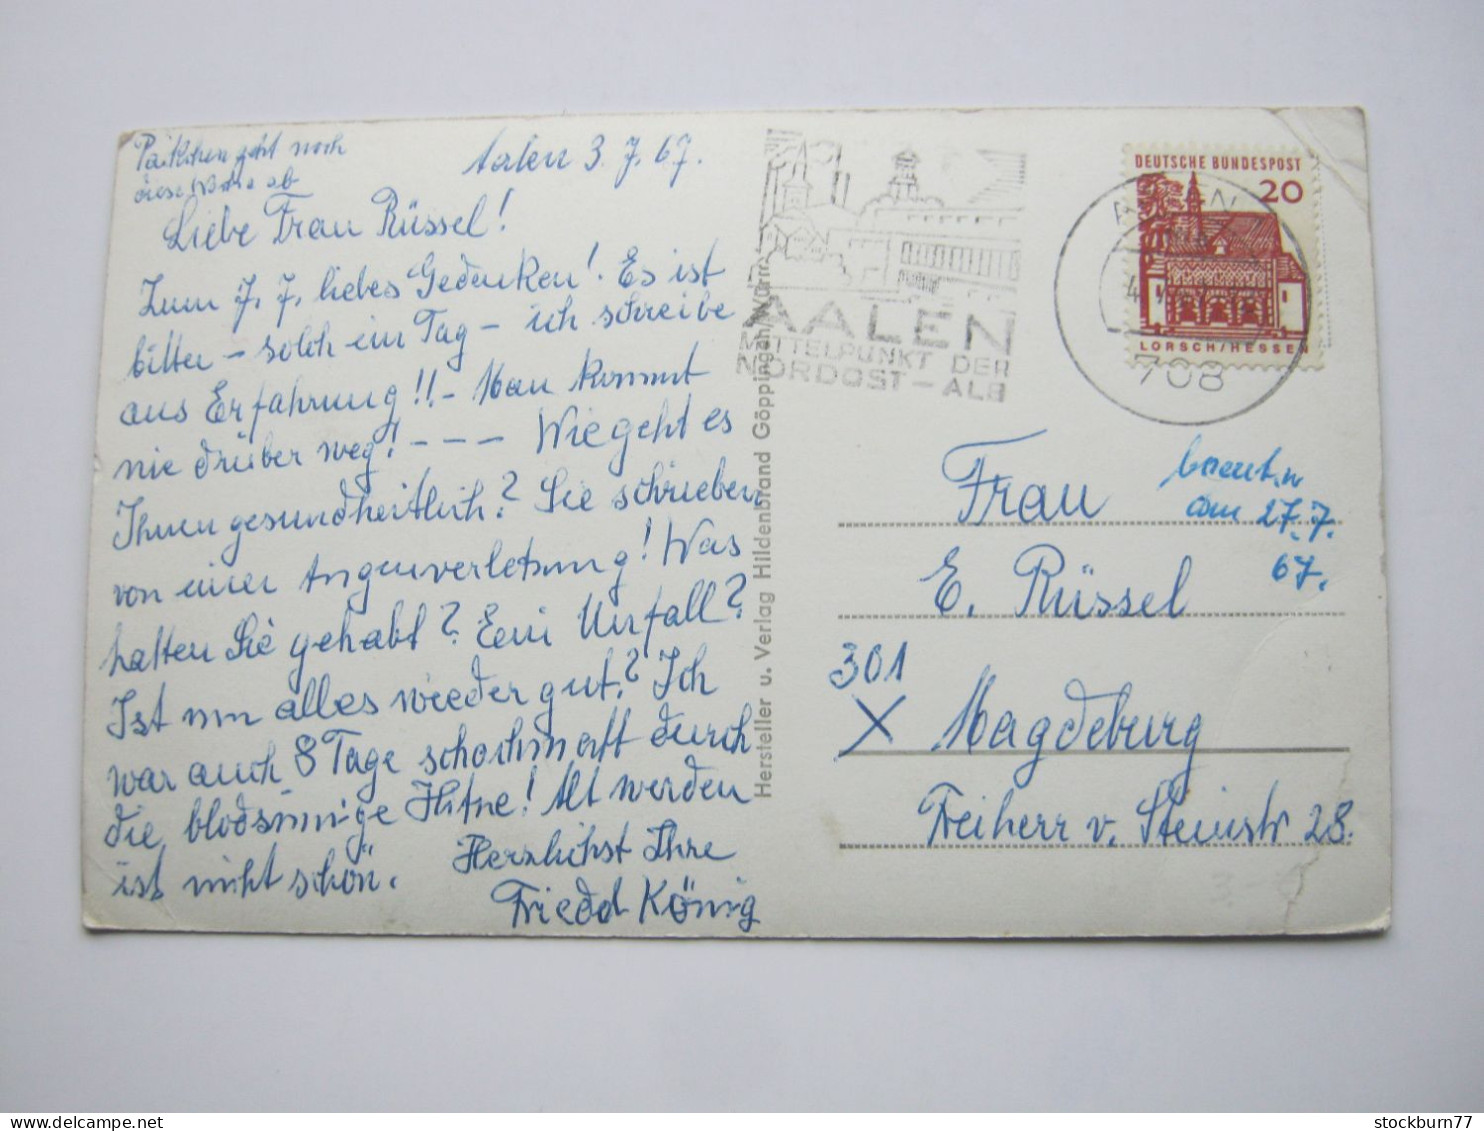 Päckchen geht noch
diese Woche ab
Aalen 3.7.67.
Liebe Frau Rüssel!
Zum 7.7. liebes Gedenken! Es ist
bitter – solch ein Tag – ich schreibe
aus Erfahrung!! – Man kommt
nie drüber weg! – – – Wie geht es
Ihnen gesundheitlich? Sie schrieben
von einer Augenverletzung! Was
hatten Sie gehabt? Ein Unfall?
Ist nun alles wieder gut? Ich
war auch 8 Tage schachmatt durch
die blödsinnige Hitze! Alt werden
ist nicht schön.
Herzlichst Ihre
Friedel König
Hersteller u. Verlag Hildenbrand Göppingen/Württ.
AALEN
MITTELPUNKT DER
NORDOST–ALB
AALEN
708
DEUTSCHE BUNDESPOST
20
LORSCH/HESSEN
am 27.7.
67.
Frau
E. Rüssel
301
X Magdeburg
Freiherr v. Steinstr 28.
stockburn77